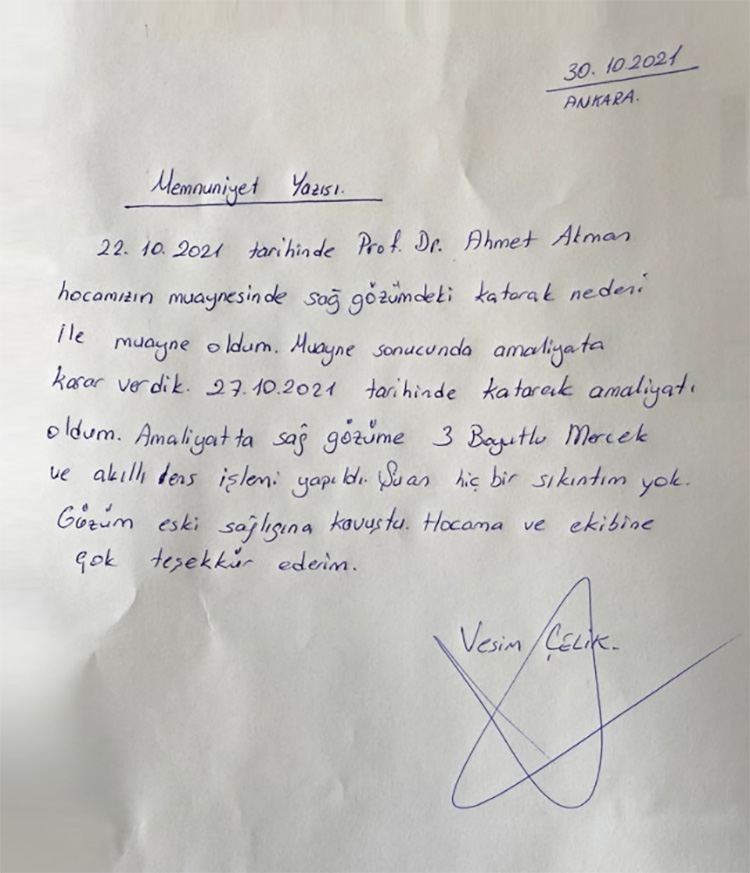 30.10.2021
ANKARA.
Memnuniyet Yazısı.
22.10.2021 tarihinde Prof. Dr. Ahmet Akman
hocamızın muaynesinde sağ gözümdeki katarak nedeni
ile muayne oldum. Muayne sonucunda amaliyata
karar verdik. 27.10.2021 tarihinde katarak amaliyatı
oldum. Amaliyatta sağ gözüme 3 Boyutlu Mercek
ve akıllı lens işlemi yapıldı. Şuan hiç bir sıkıntım yok.
Gözüm eski sağlığına kavuştu. Hocama ve ekibine
çok teşekkür ederim.
Vesim ÇELİK.